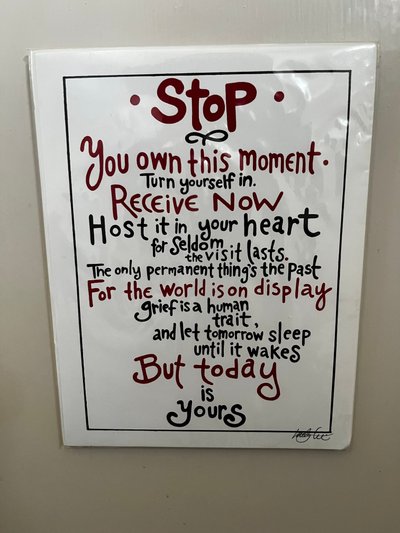 • Stop •
You own this moment.
Turn yourself in.
Receive Now
Host it in your heart
for Seldom
the visit lasts.
The only permanent thing's the past
For the world is on display
grief is a human
trait,
and let tomorrow sleep
until it wakes
But today
is
yours